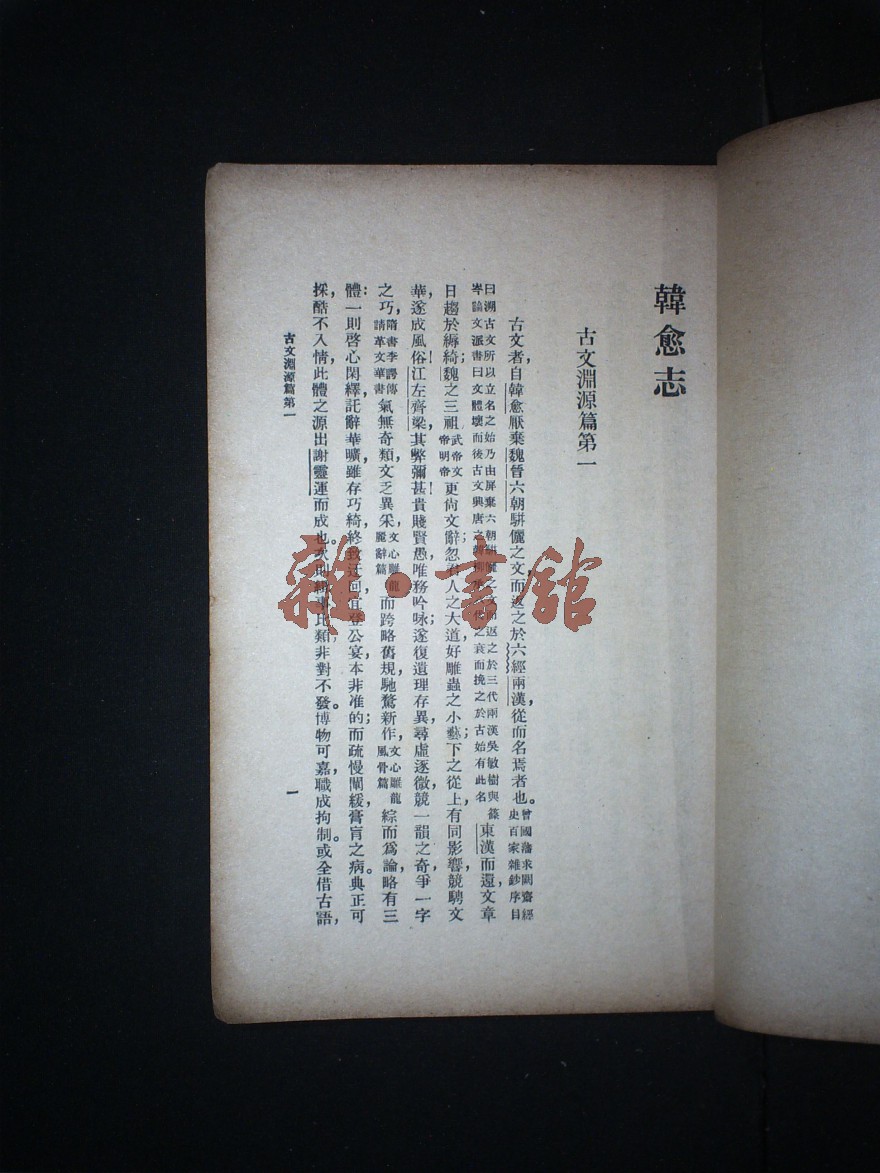 韓愈志
古文淵源篇第一
古文者,自韓愈厭棄魏晉六朝駢儷之文而返之於六經兩漢,從而名焉者也。曾國藩求闕齋經史百家雜鈔序目
曰溯古文所以立名之始乃由屏棄六朝駢儷之文而返之於三代兩漢吳敏樹與篠岑論文派書曰文體壞而後古文興唐之韓柳代之衰而挽之於古始有此名東漢而還文章
日趨於縟綺,魏之三祖武帝文帝明帝更尚文辭;忽君人之大道,好雕蟲之小藝;下之從上,有同影響,競騁文
華,遂成風俗!江左齊梁,其弊彌甚!貴賤賢愚,唯務吟咏;遂復遺理存異,尋虛逐微,競一韻之奇,爭一字
之巧,隋書李諤傳請革文華書氣無奇類,文乏異采,文心雕龍麗辭篇而跨略舊規,馳騖新作,文心雕龍風骨篇綜而爲論,略有三
體:一則啓心閑繹,託辭華曠,雖存巧綺,終致迂回,宜登公宴,本非准的;而疏慢闡緩,膏肓之病。典正可
採,酷不入情,此體之源,出謝靈運而成也。次則緝事比類,非對不發,博物可嘉,職成拘制。或全借古語,
古文淵源篇第一
一
雜·書館